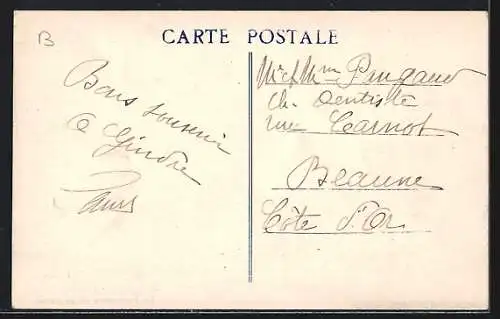 B
CARTE POSTALE
Bons souvenir
a Gindre
Mr et Mme Pingaud
Ch. Dentiste
rue Carnot
Beaune
Côte d'Or